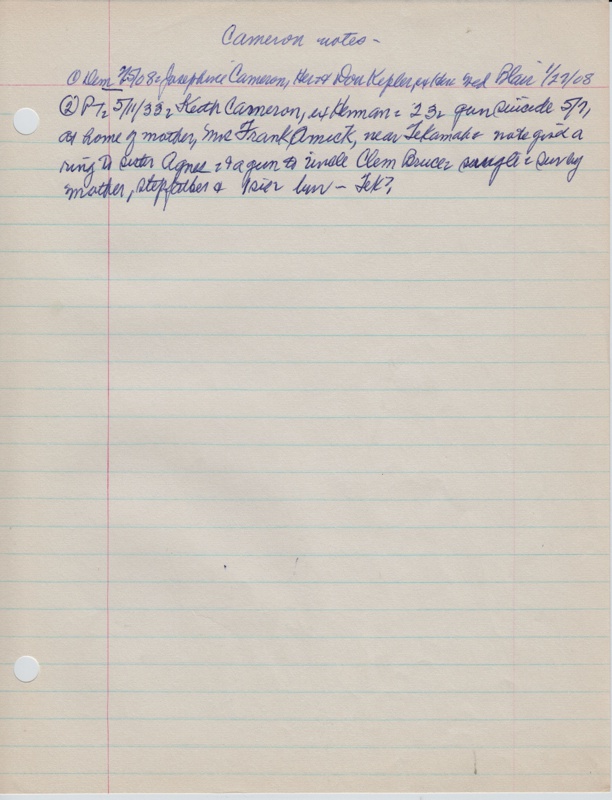 Cameron notes -
① Dem 2/5/08: Josephine Cameron, Her & Don Kepler, ex Her. wed Blair 1/22/08
② PT: 5/11/33: Keith Cameron, ex Herman: 23: gun suicide 5/7,
at home of mother, Mrs Frank Amick, near Tekamah: note givd a
ring to sister Agnes: & a gun to uncle Clem Bruce: single: surv by
mother, stepfather & 1 sier bur - Tek?,